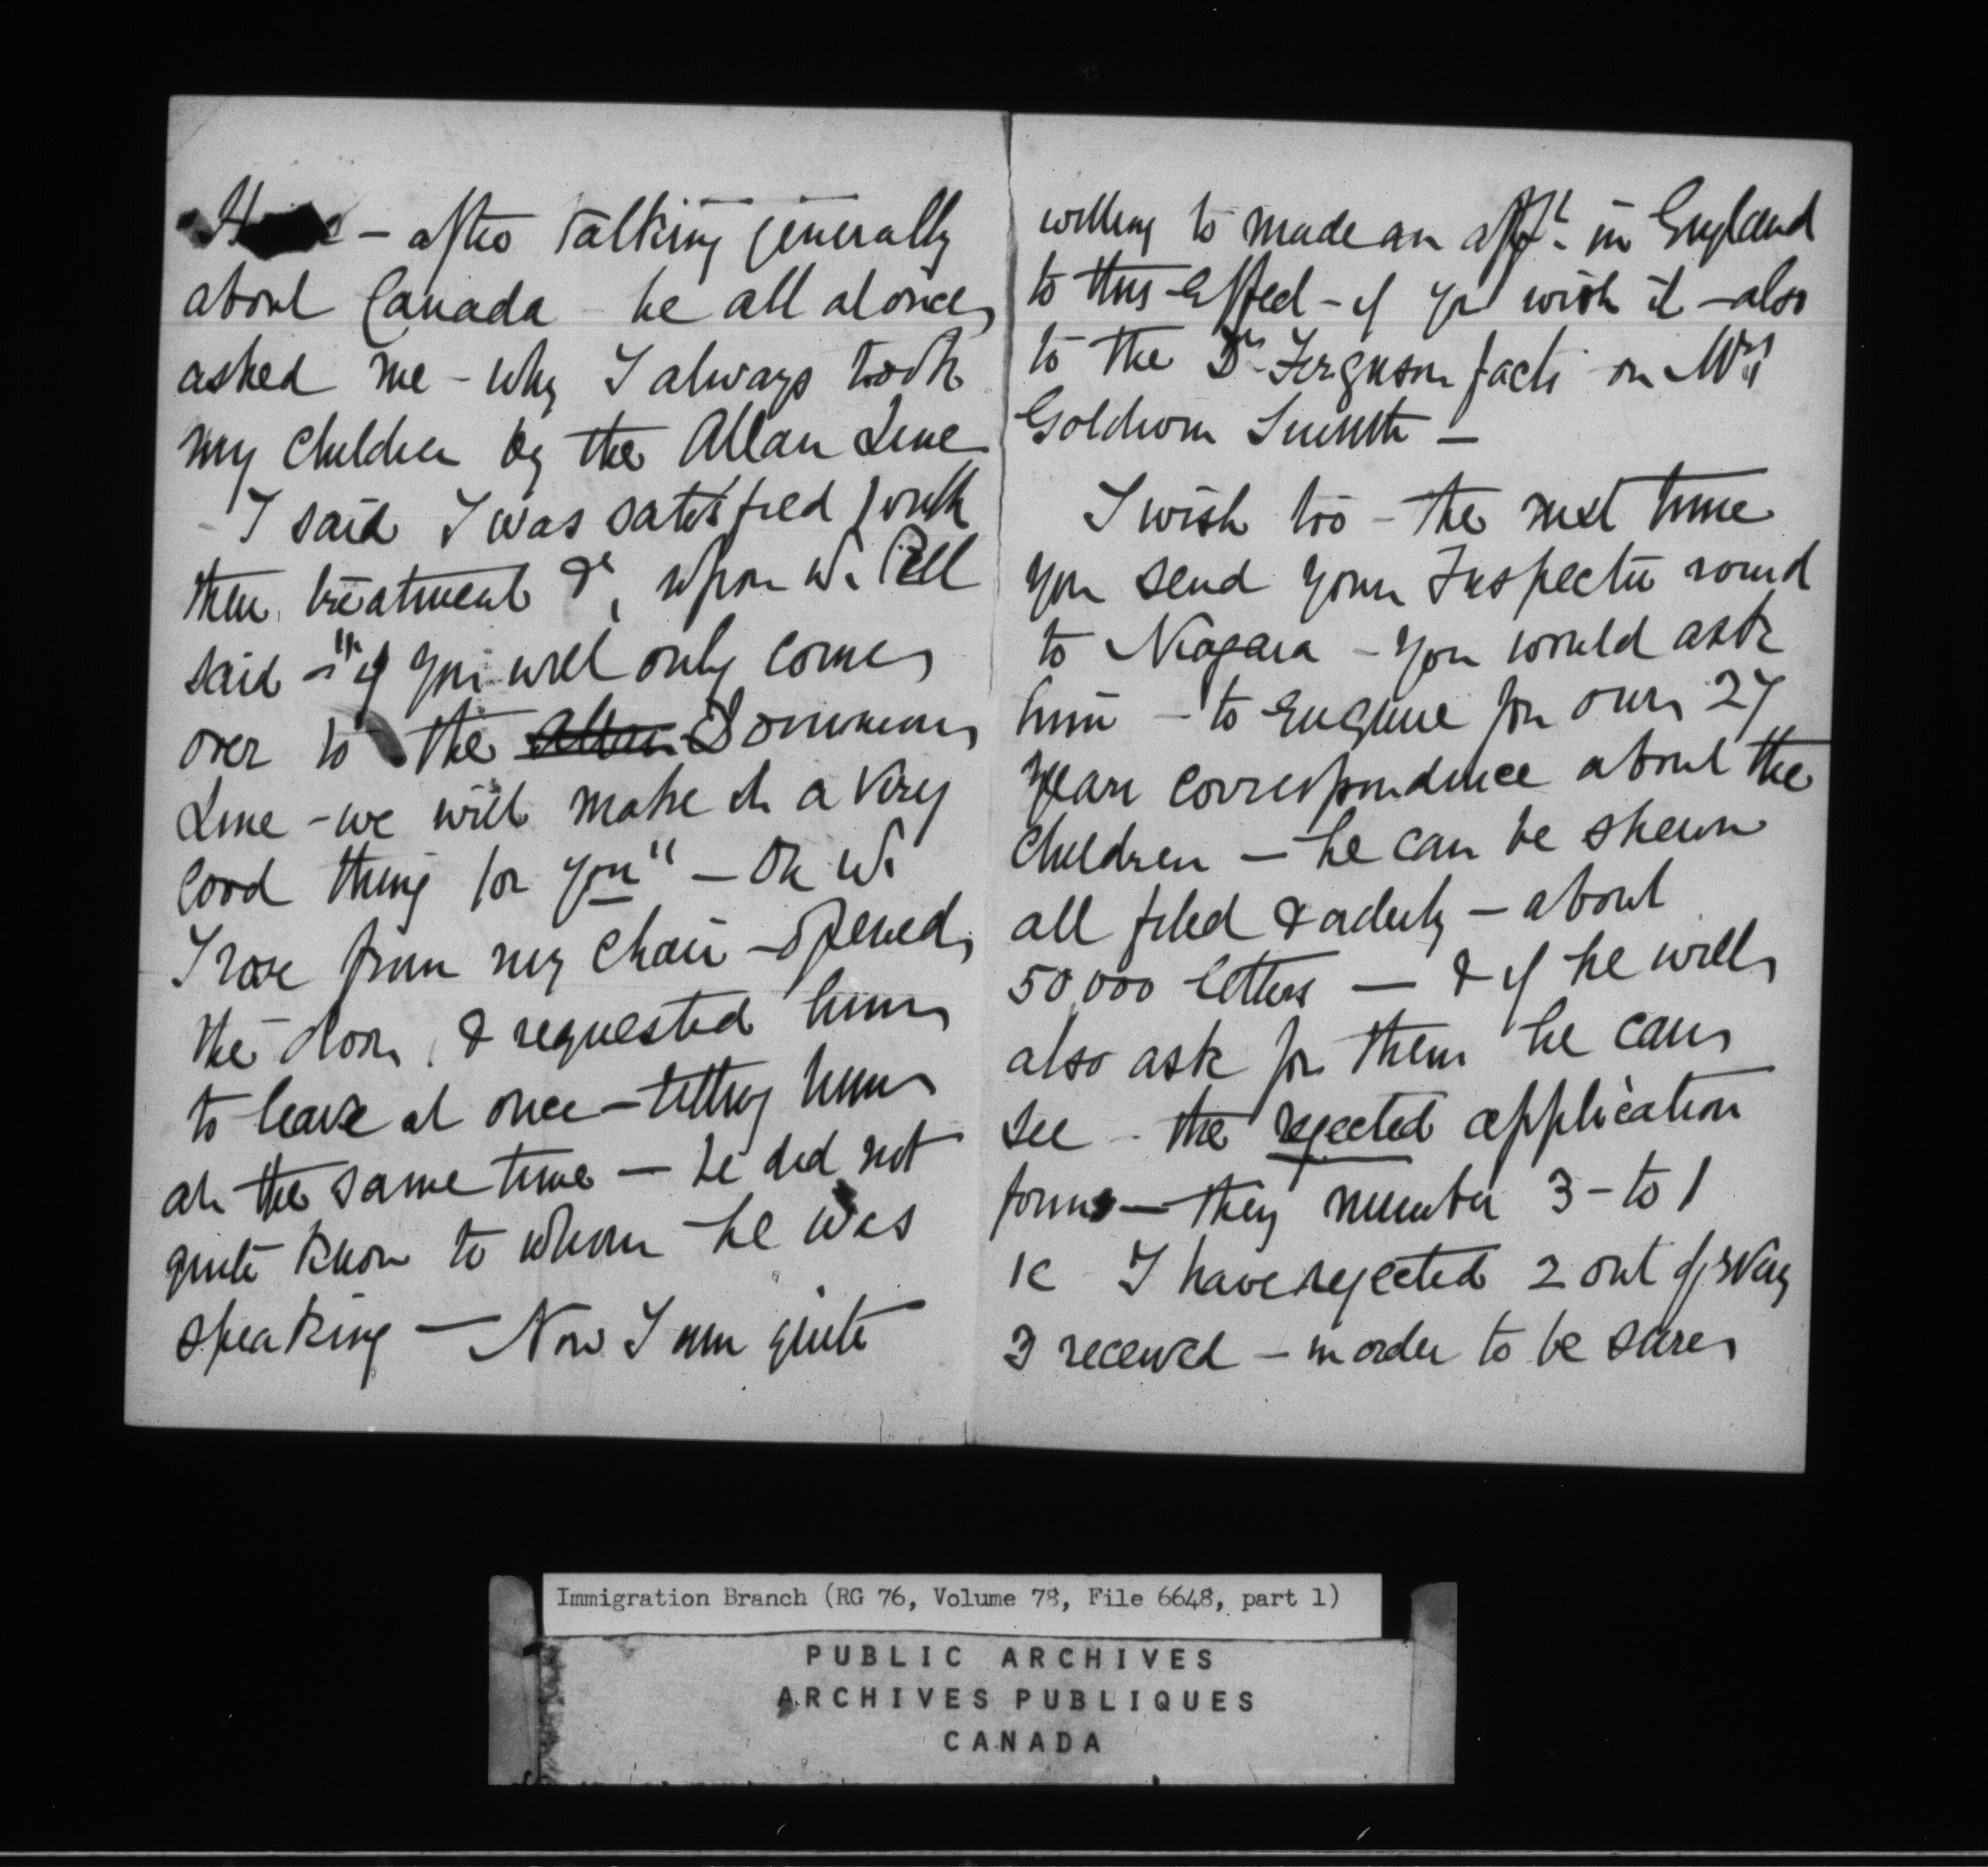 – after talking generally
about Canada – he all at once
asked me – why I always took
my children by the Allan Line
– I said I was satisfied with
their treatment &c, upon wh.
said – "if you will only come
over to the Allan Dominion
Line – we will make it a very
good thing for you" – On wh.
I rose from my chair – opened
the door, & requested him
to leave at once – telling him
at the same time – he did not
quite know to whom he was
speaking – Now I am quite
willing to made an afft. in England
to this effect – if you wish it – also
to the Dr. Ferguson facts on Mrs
Goldwin Smith –
I wish too – the next time
you send your Inspector round
to Niagara – you would ask
him – to enquire for our 27
years correspondence about the
children – he can be shewn
all filed & orderly – about
50,000 letters – & if he will
also ask for them he can
see – the rejected application
forms – they number 3 – to 1
ie I have rejected 2 out of every
3 received – in order to be sure
Immigration Branch (RG 76, Volume 78, File 6648, part 1)
PUBLIC ARCHIVES
ARCHIVES PUBLIQUES
CANADA